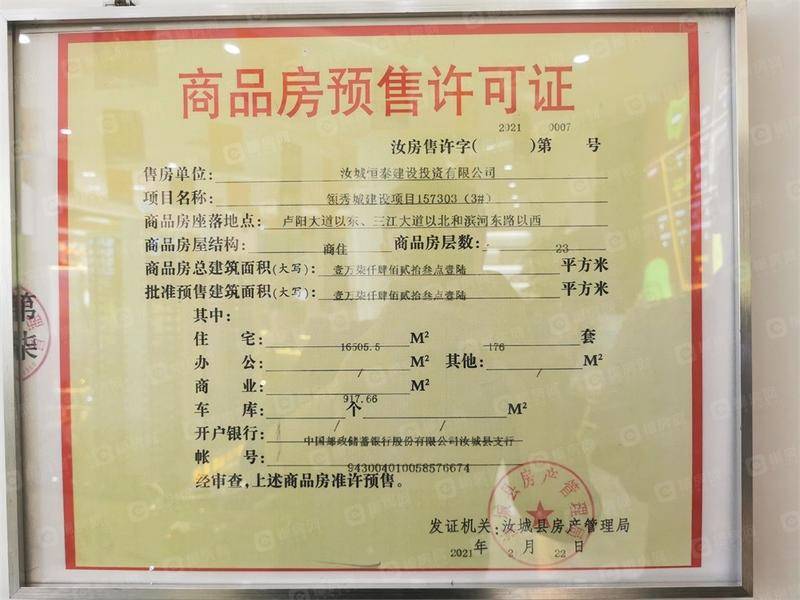 商品房预售许可证
2021 0007
汝房售许字( )第 号
售房单位: 汝城恒泰建设投资有限公司
项目名称: 领秀城建设项目157303（3#）
商品房座落地点: 卢阳大道以东、三江大道以北和滨河东路以西
商品房屋结构: 商住 商品房层数: 23
商品房总建筑面积(大写): 壹万柒仟肆佰贰拾叁点壹陆 平方米
批准预售建筑面积(大写): 壹万柒仟肆佰贰拾叁点壹陆 平方米
其中:
住 宅: 16505.5 M² 176 套
办 公: / M² 其他: / M²
商 业: 917.66 M²
车 库: 个 / M²
开户银行: 中国邮政储蓄银行股份有限公司汝城县支行
帐 号: 943004010058576674
经审查,上述商品房准许预售。
发证机关:汝城县房产管理局
2021年 2 月 22 日
第
柒